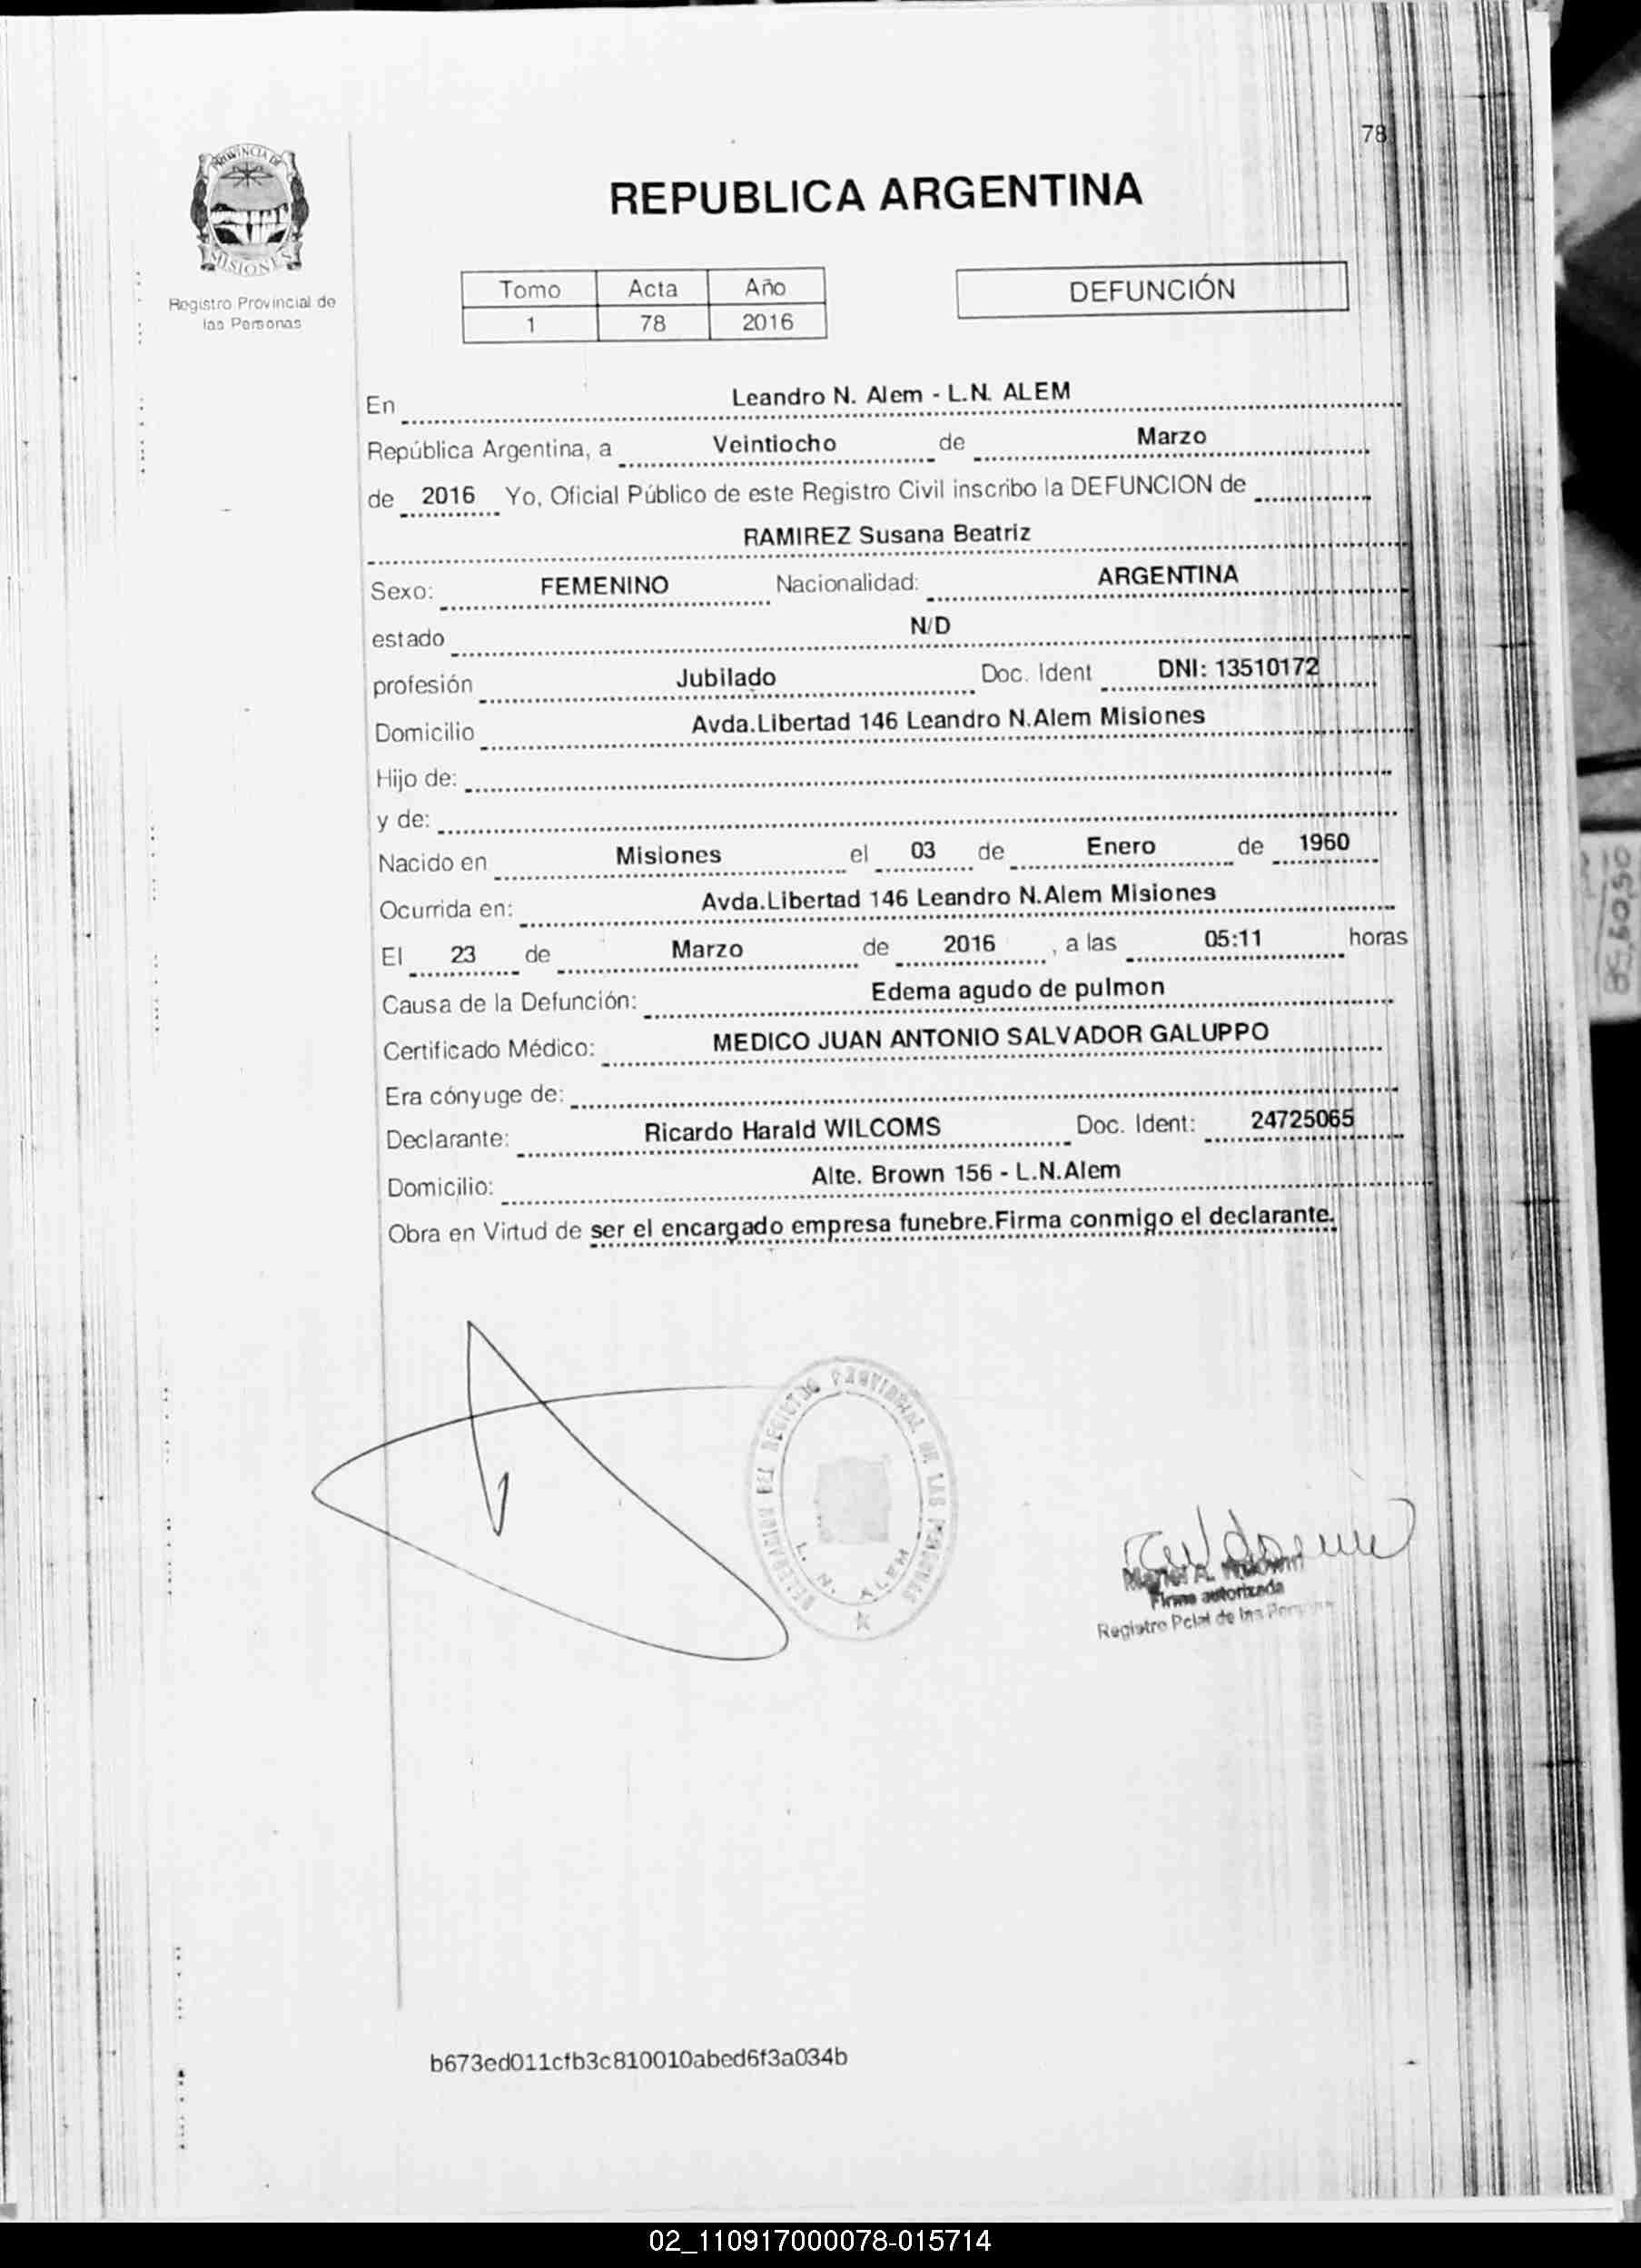 78
PROVINCIA DE
MISIONES
Registro Provincial de
las Personas
REPUBLICA ARGENTINA
Tomo Acta Año
1 78 2016
DEFUNCIÓN
En Leandro N. Alem - L.N. ALEM
República Argentina, a Veintiocho de Marzo
de 2016 Yo, Oficial Público de este Registro Civil inscribo la DEFUNCION de
RAMIREZ Susana Beatriz
Sexo: FEMENINO Nacionalidad: ARGENTINA
estado N/D
profesión Jubilado Doc. Ident DNI: 13510172
Domicilio Avda.Libertad 146 Leandro N.Alem Misiones
Hijo de:
y de:
Nacido en Misiones el 03 de Enero de 1960
Ocurrida en: Avda.Libertad 146 Leandro N.Alem Misiones
El 23 de Marzo de 2016 , a las 05:11 horas
Causa de la Defunción: Edema agudo de pulmon
Certificado Médico: MEDICO JUAN ANTONIO SALVADOR GALUPPO
Era cónyuge de:
Declarante: Ricardo Harald WILCOMS Doc. Ident: 24725065
Domicilio: Alte. Brown 156 - L.N.Alem
Obra en Virtud de ser el encargado empresa funebre.Firma conmigo el declarante.
REGISTRO PROVINCIAL DE LAS PERSONAS
L. N. ALEM
Firma autorizada
Registro Pcial de las
b673ed011cfb3c810010abed6f3a034b
02_110917000078-015714